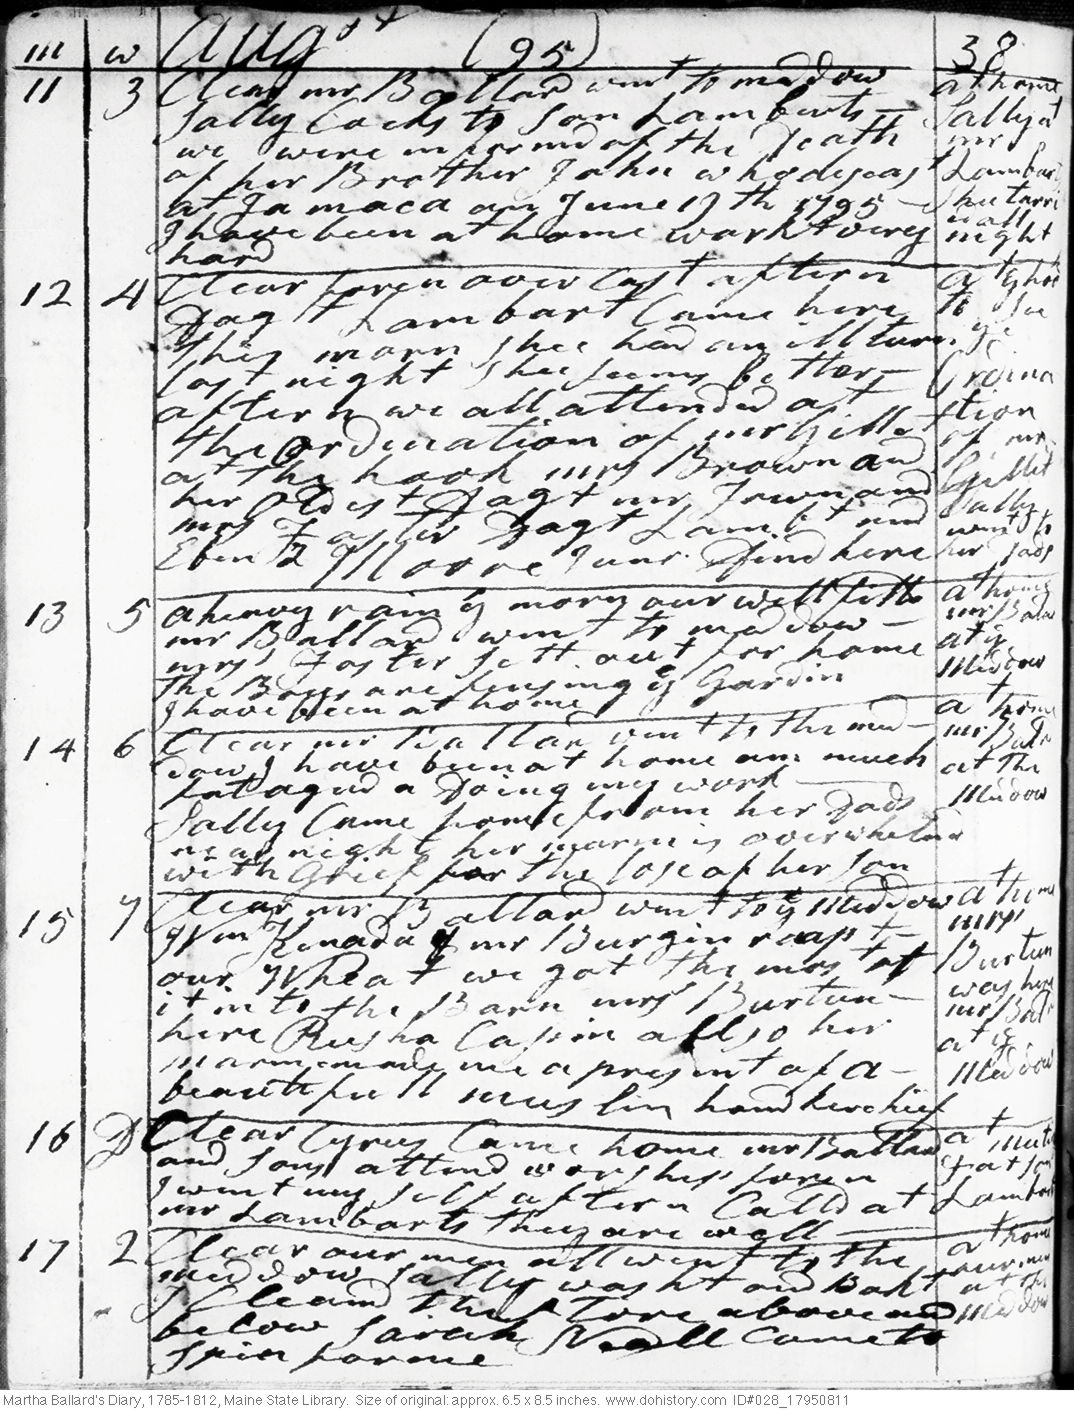 m w Augst (95) 38
11 3 Clear mr Ballard went to meadow
Sally Cocks to Son Lambarts
we were informd of the Death
of her Brother John who deceast
at Jamaca on June 17th 1795
I have been at home workt very
hard
at home
Sally at
mr
Lambarts
shee tarri
all
night
12 4 Clear foren over Cast aftern
Dagt Lambart Came here
this morn shee had an ill turn
last night shee seems better
aftern we all attended at
the ordination of mr Gillet
at the hook mrs Brown and
her oldest Dagt mr Town and
mrs Foster Dagt Lambt and
Ebenzr Moore Junr Dind here
at ye hook
to see
ye
Ordina
tion
of mr
Gillet
Sally
went to
her Dads
13 5 a heavy rain ye morng our well fills
mr Ballard went to meadow
mrss Foster sett out for home
The Boys are fensing ye Gardin
I have been at home
at home
mr Balad
at ye
Medow
14 6 Clear mr Ballard went to the mad
dow I have been at home am much
fatagud a Doing my work
Sally Came home from her Dads
near night her marm is overwhelmd
with Grief for the lose of her son
at home
mr Bald
at the
Meadow
15 7 Clear mr Ballard went to ye Meddow
Wm Kenada & mr Burgin reapt
our Wheat we got the most of
it into the Barn mrs Burtun
here Rusha Caspin allso her
marm made me a present of a
beautifull muslin handkerchief
at home
mrs
Burtun
was here
mr Bald
at ye
Meddow
16 D Clear Cyrus Came home mr Ballard
and sons attend worship foren
I went my self aftern Calld at
mr Lambarts they are well
at meetg
& at son
Lambarts
17 2 Clear our men all went to the
meddow Sally washt and Bakt
I Cleand the Store above and
below Sarah Neall Came to
spin for me
at home
our men
at the
Meddow
Martha Ballard's Diary, 1785-1812, Maine State Library. Size of original: approx. 6.5 x 8.5 inches. www.dohistory.com ID#028_17950811